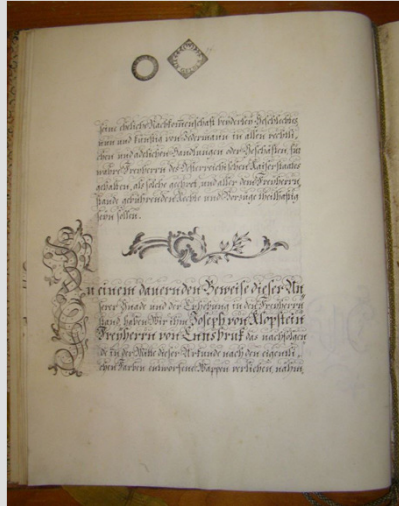 seine eheliche Nachkommenschaft beyderley Geschlechtes
nun und künftig von Jedermann in allen rechtli-
chen und adelichen Handlungen oder Geschäften für
wahre Freyherrn des Oesterreichischen Kaiserstaates
gehalten, als solche geehrt, und aller dem Freyherrn-
stand gebührenden Rechte und Vorzüge theilhaftig
seyn sollen.
Zu einem dauernden Beweise dieser Un-
serer Gnade und der Erhebung in den Freyherrn-
stand haben Wir ihm Joseph von Klopstein
Freyherrn von Ennsbruk das nachfolgen-
de in der Mitte dieser Urkunde nach den eigentli-
chen Farben entworfene Wappen verliehen, nähm-